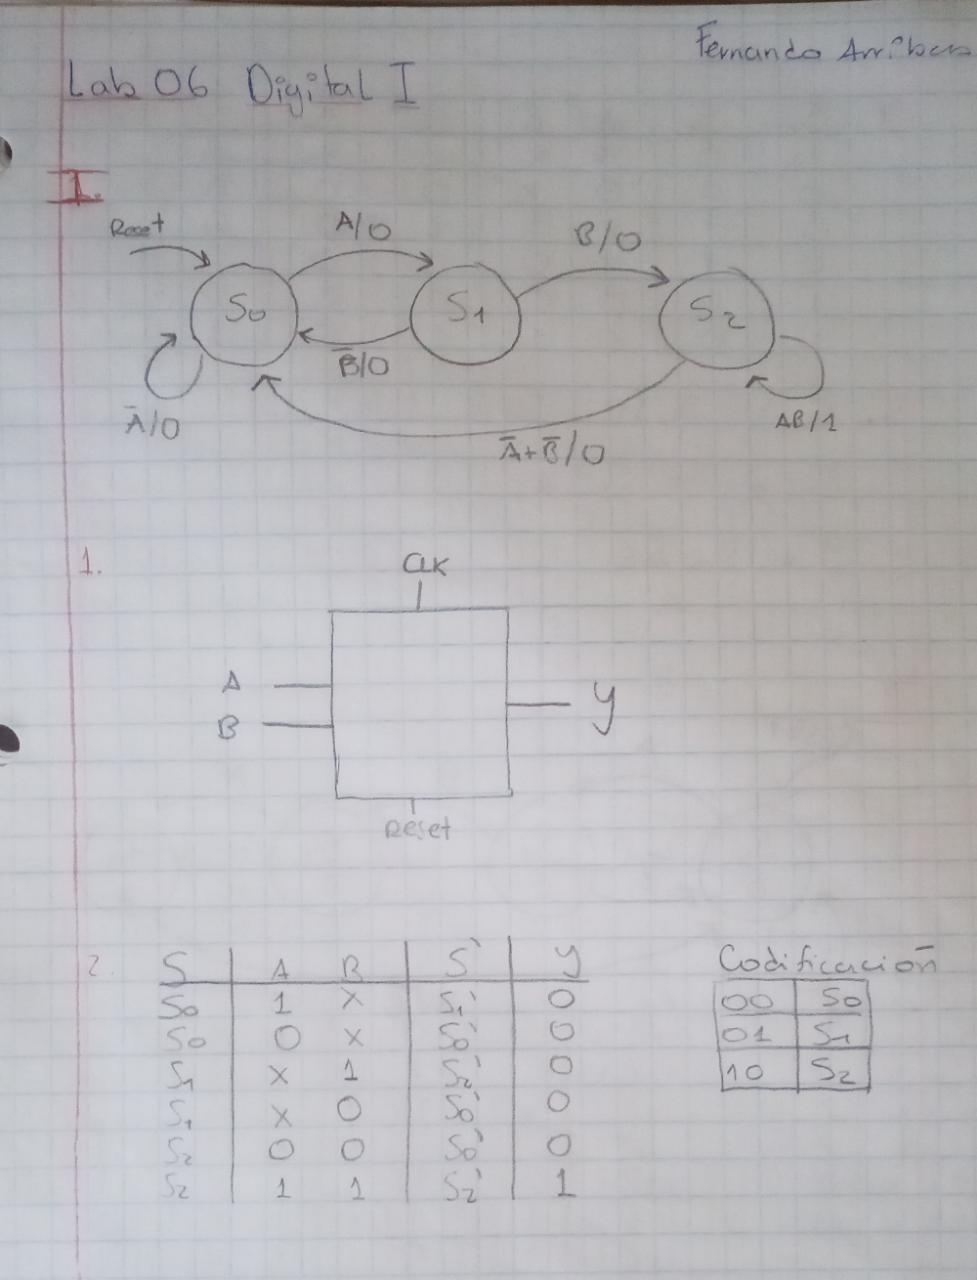 Fernando Arribas
Lab 06 Digital I
I.
Reset
A/0
B/0
S0 S1 S2
B̅/0
A̅/0
AB/1
A̅+B̅/0
1.
CLK
A
B
Y
Reset
2. S A B S' Y
S0 1 X S1' 0
S0 0 X S0' 0
S1 X 1 S2' 0
S1 X 0 S0' 0
S2 0 0 S0' 0
S2 1 1 S2' 1
Codificación
00 S0
01 S1
10 S2